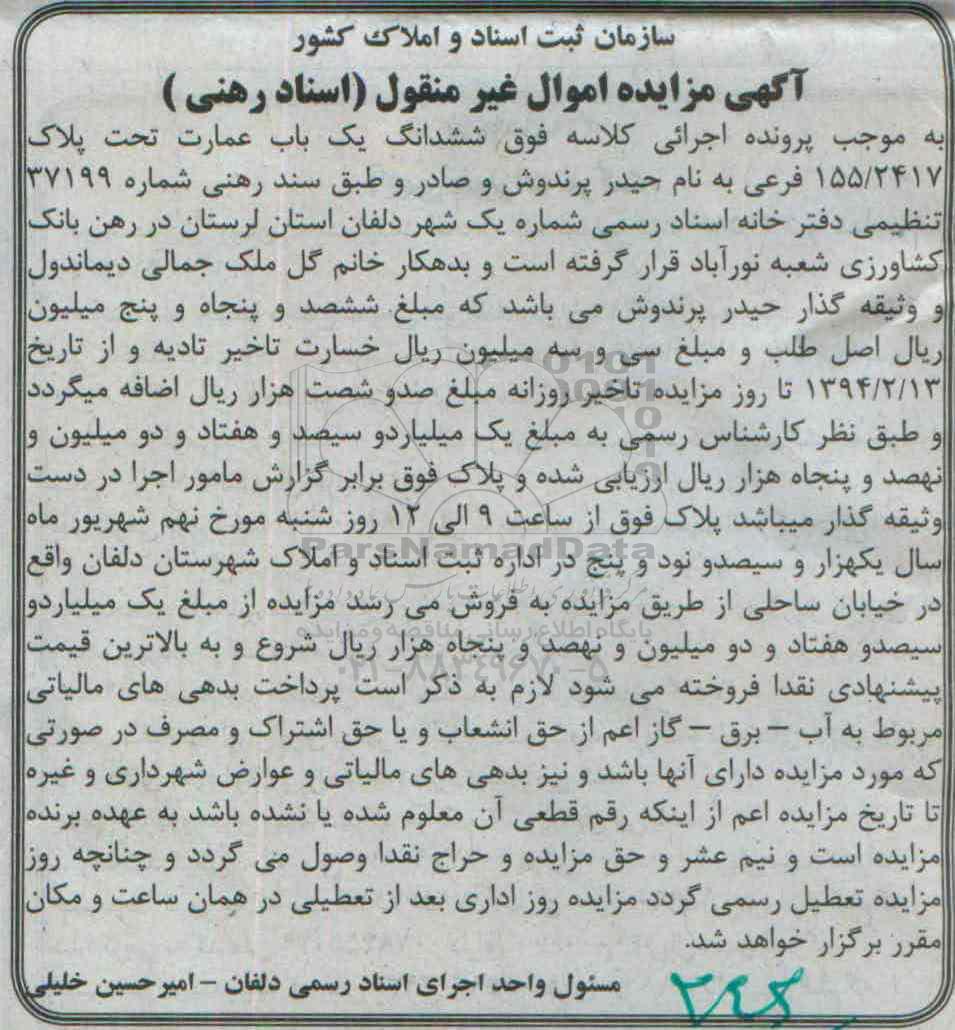 سازمان ثبت اسناد و املاک کشور
آگهی مزایده اموال غیر منقول (اسناد رهنی )
به موجب پرونده اجرائی کلاسه فوق ششدانگ یک باب عمارت تحت پلاک
۱۵۵/۲۴۱۷ فرعی به نام حیدر پرندوش و صادر و طبق سند رهنی شماره ۳۷۱۹۹
تنظیمی دفتر خانه اسناد رسمی شماره یک شهر دلفان استان لرستان در رهن بانک
کشاورزی شعبه نورآباد قرار گرفته است و بدهکار خانم گل ملک جمالی دیماندول
و وثیقه گذار حیدر پرندوش می باشد که مبلغ ششصد و پنجاه و پنج میلیون
ریال اصل طلب و مبلغ سی و سه میلیون ریال خسارت تاخیر تادیه و از تاریخ
۱۳۹۴/۲/۱۳ تا روز مزایده تاخیر روزانه مبلغ صدو شصت هزار ریال اضافه میگردد
و طبق نظر کارشناس رسمی به مبلغ یک میلیاردو سیصد و هفتاد و دو میلیون و
نهصد و پنجاه هزار ریال ارزیابی شده و پلاک فوق برابر گزارش مامور اجرا در دست
وثیقه گذار میباشد پلاک فوق از ساعت ۹ الی ۱۲ روز شنبه مورخ نهم شهریور ماه
سال یکهزار و سیصدو نود و پنج در اداره ثبت اسناد و املاک شهرستان دلفان واقع
در خیابان ساحلی از طریق مزایده به فروش می رسد مزایده از مبلغ یک میلیاردو
سیصدو هفتاد و دو میلیون و نهصد و پنجاه هزار ریال شروع و به بالاترین قیمت
پیشنهادی نقدا فروخته می شود لازم به ذکر است پرداخت بدهی های مالیاتی
مربوط به آب – برق – گاز اعم از حق انشعاب و یا حق اشتراک و مصرف در صورتی
که مورد مزایده دارای آنها باشد و نیز بدهی های مالیاتی و عوارض شهرداری و غیره
تا تاریخ مزایده اعم از اینکه رقم قطعی آن معلوم شده یا نشده باشد به عهده برنده
مزایده است و نیم عشر و حق مزایده و حراج نقدا وصول می گردد و چنانچه روز
مزایده تعطیل رسمی گردد مزایده روز اداری بعد از تعطیلی در همان ساعت و مکان
مقرر برگزار خواهد شد.
مسئول واحد اجرای اسناد رسمی دلفان – امیرحسین خلیلی
ParsNamadData
پایگاه اطلاع رسانی مناقصه و مزایده
۰۲۱-۸۸۳۴۹۶۷۰-۵